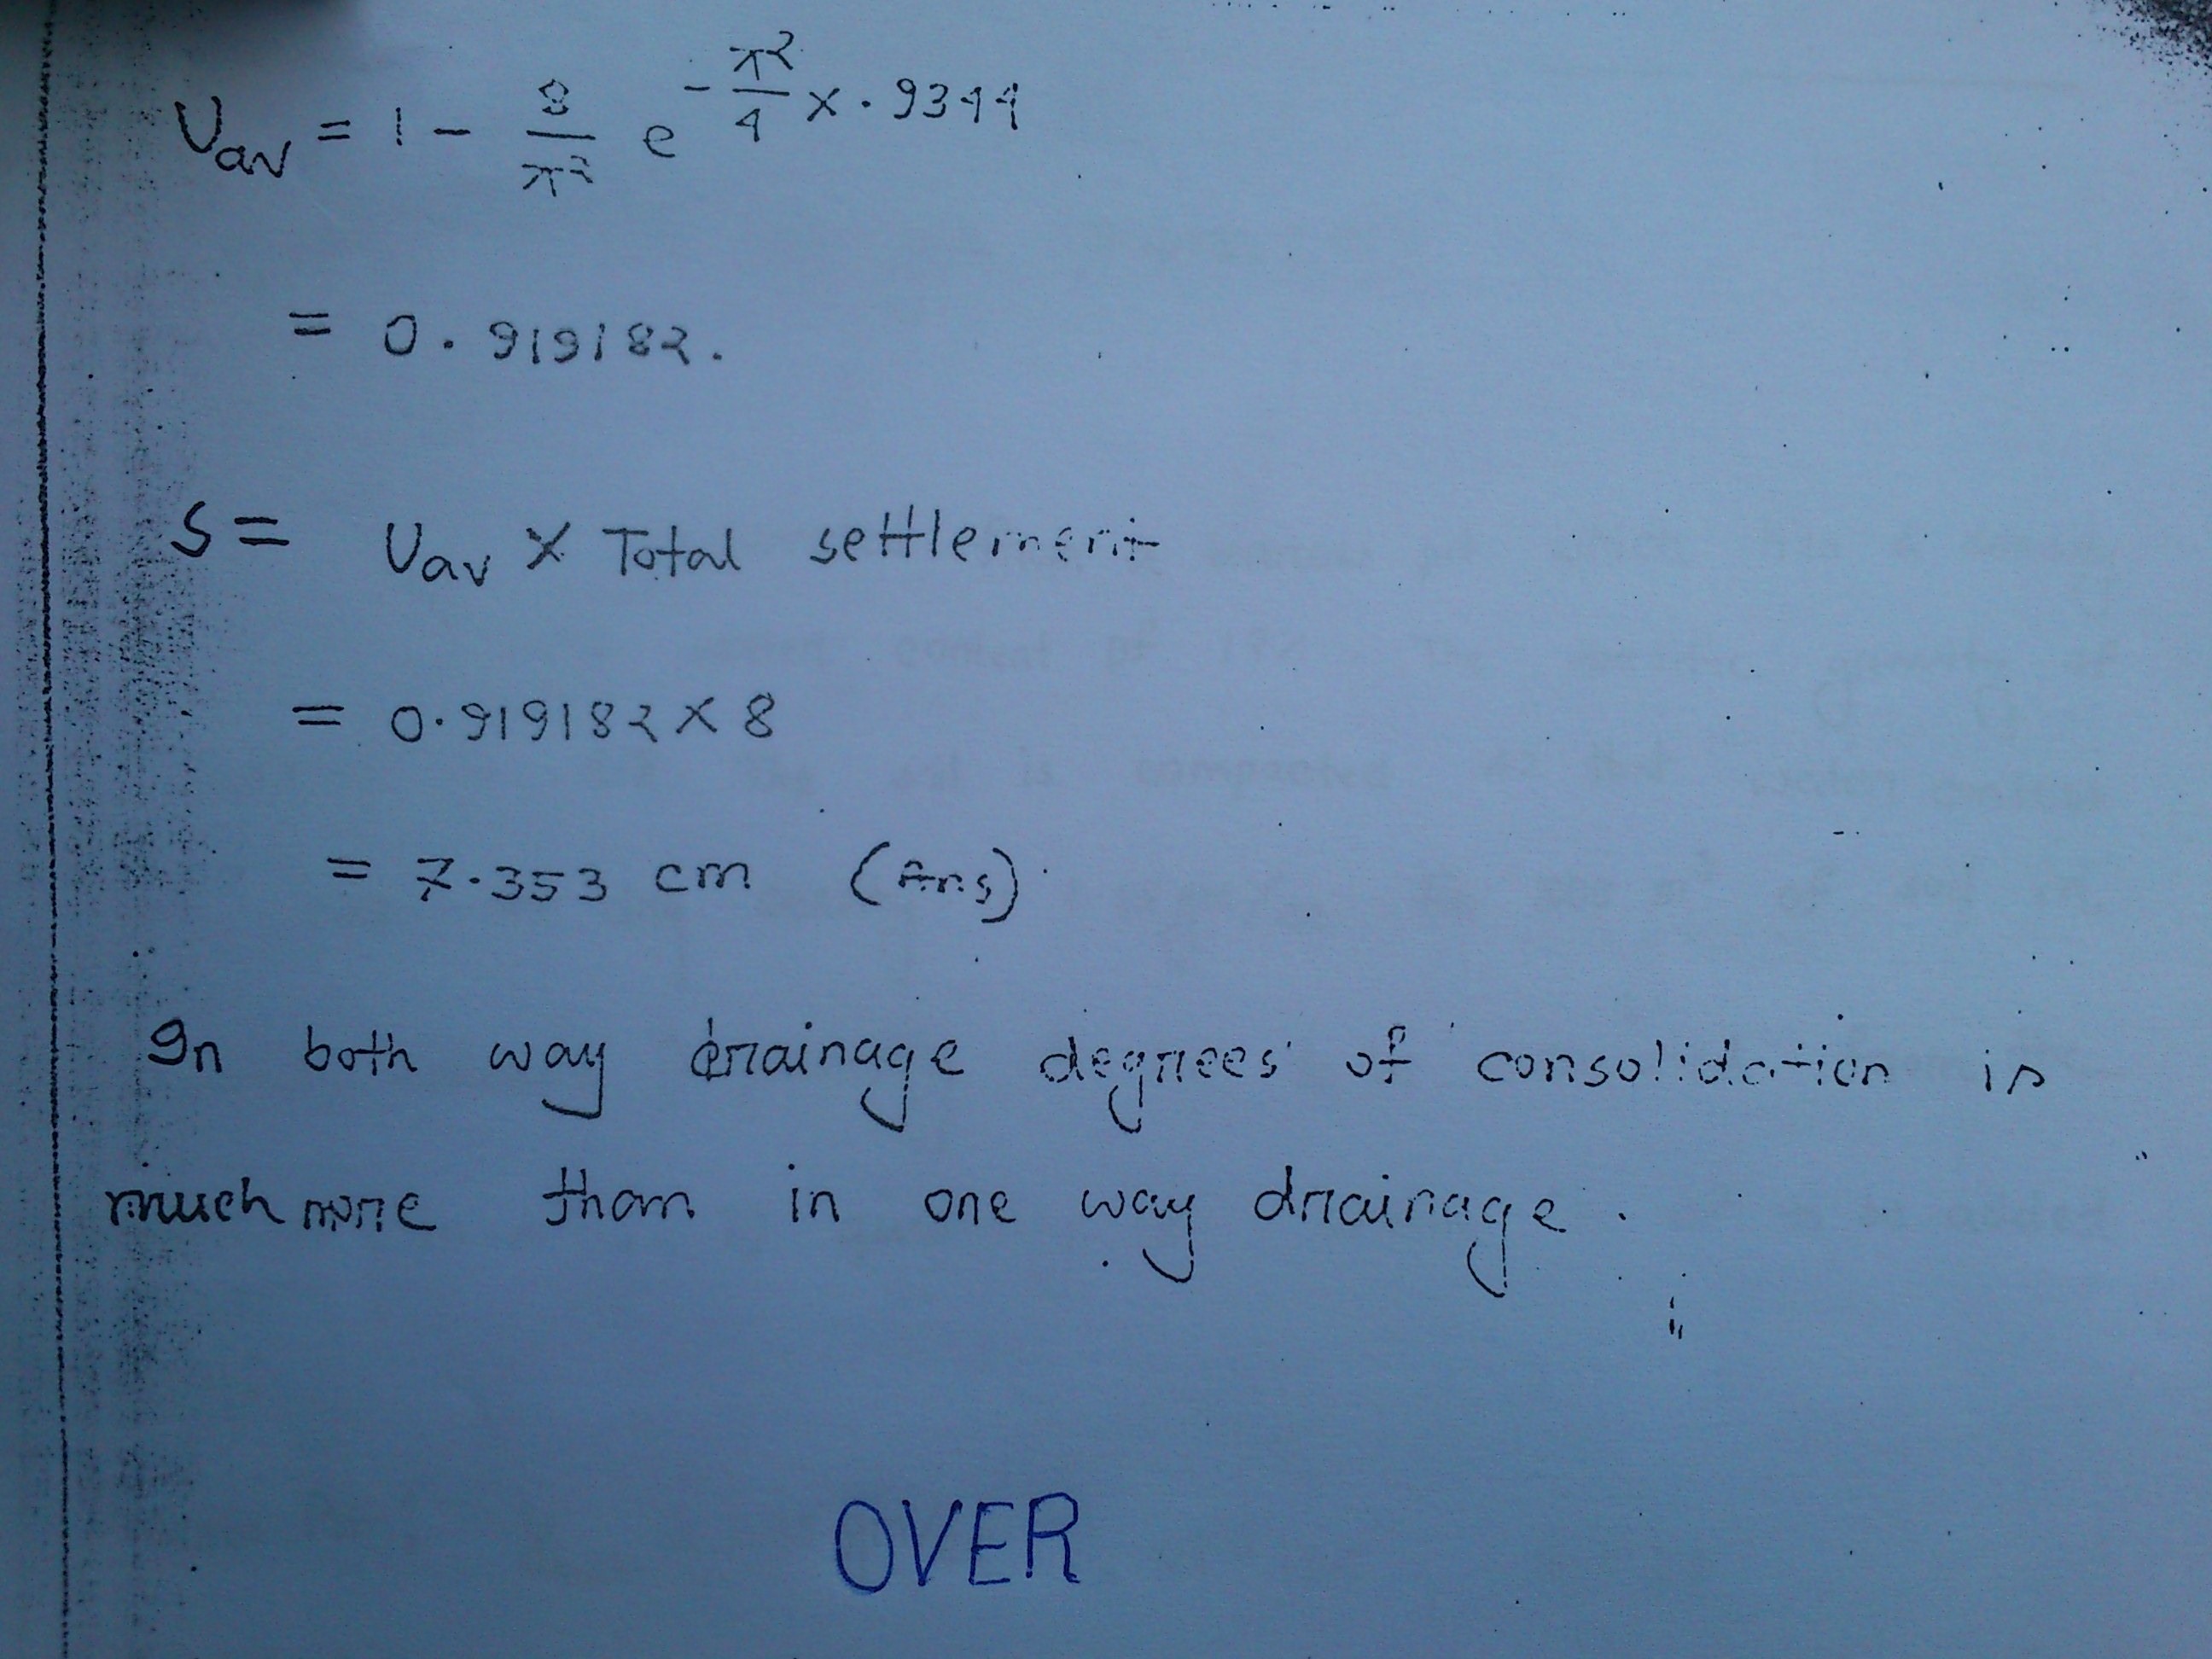 Uav = 1 - 8/π² e^(-π²/4 x .9344)
= 0.919182.
S = Uav X Total settlement
= 0.919182 X 8
= 7.353 cm (Ans)
In both way drainage degrees of consolidation is
much more than in one way drainage.
OVER